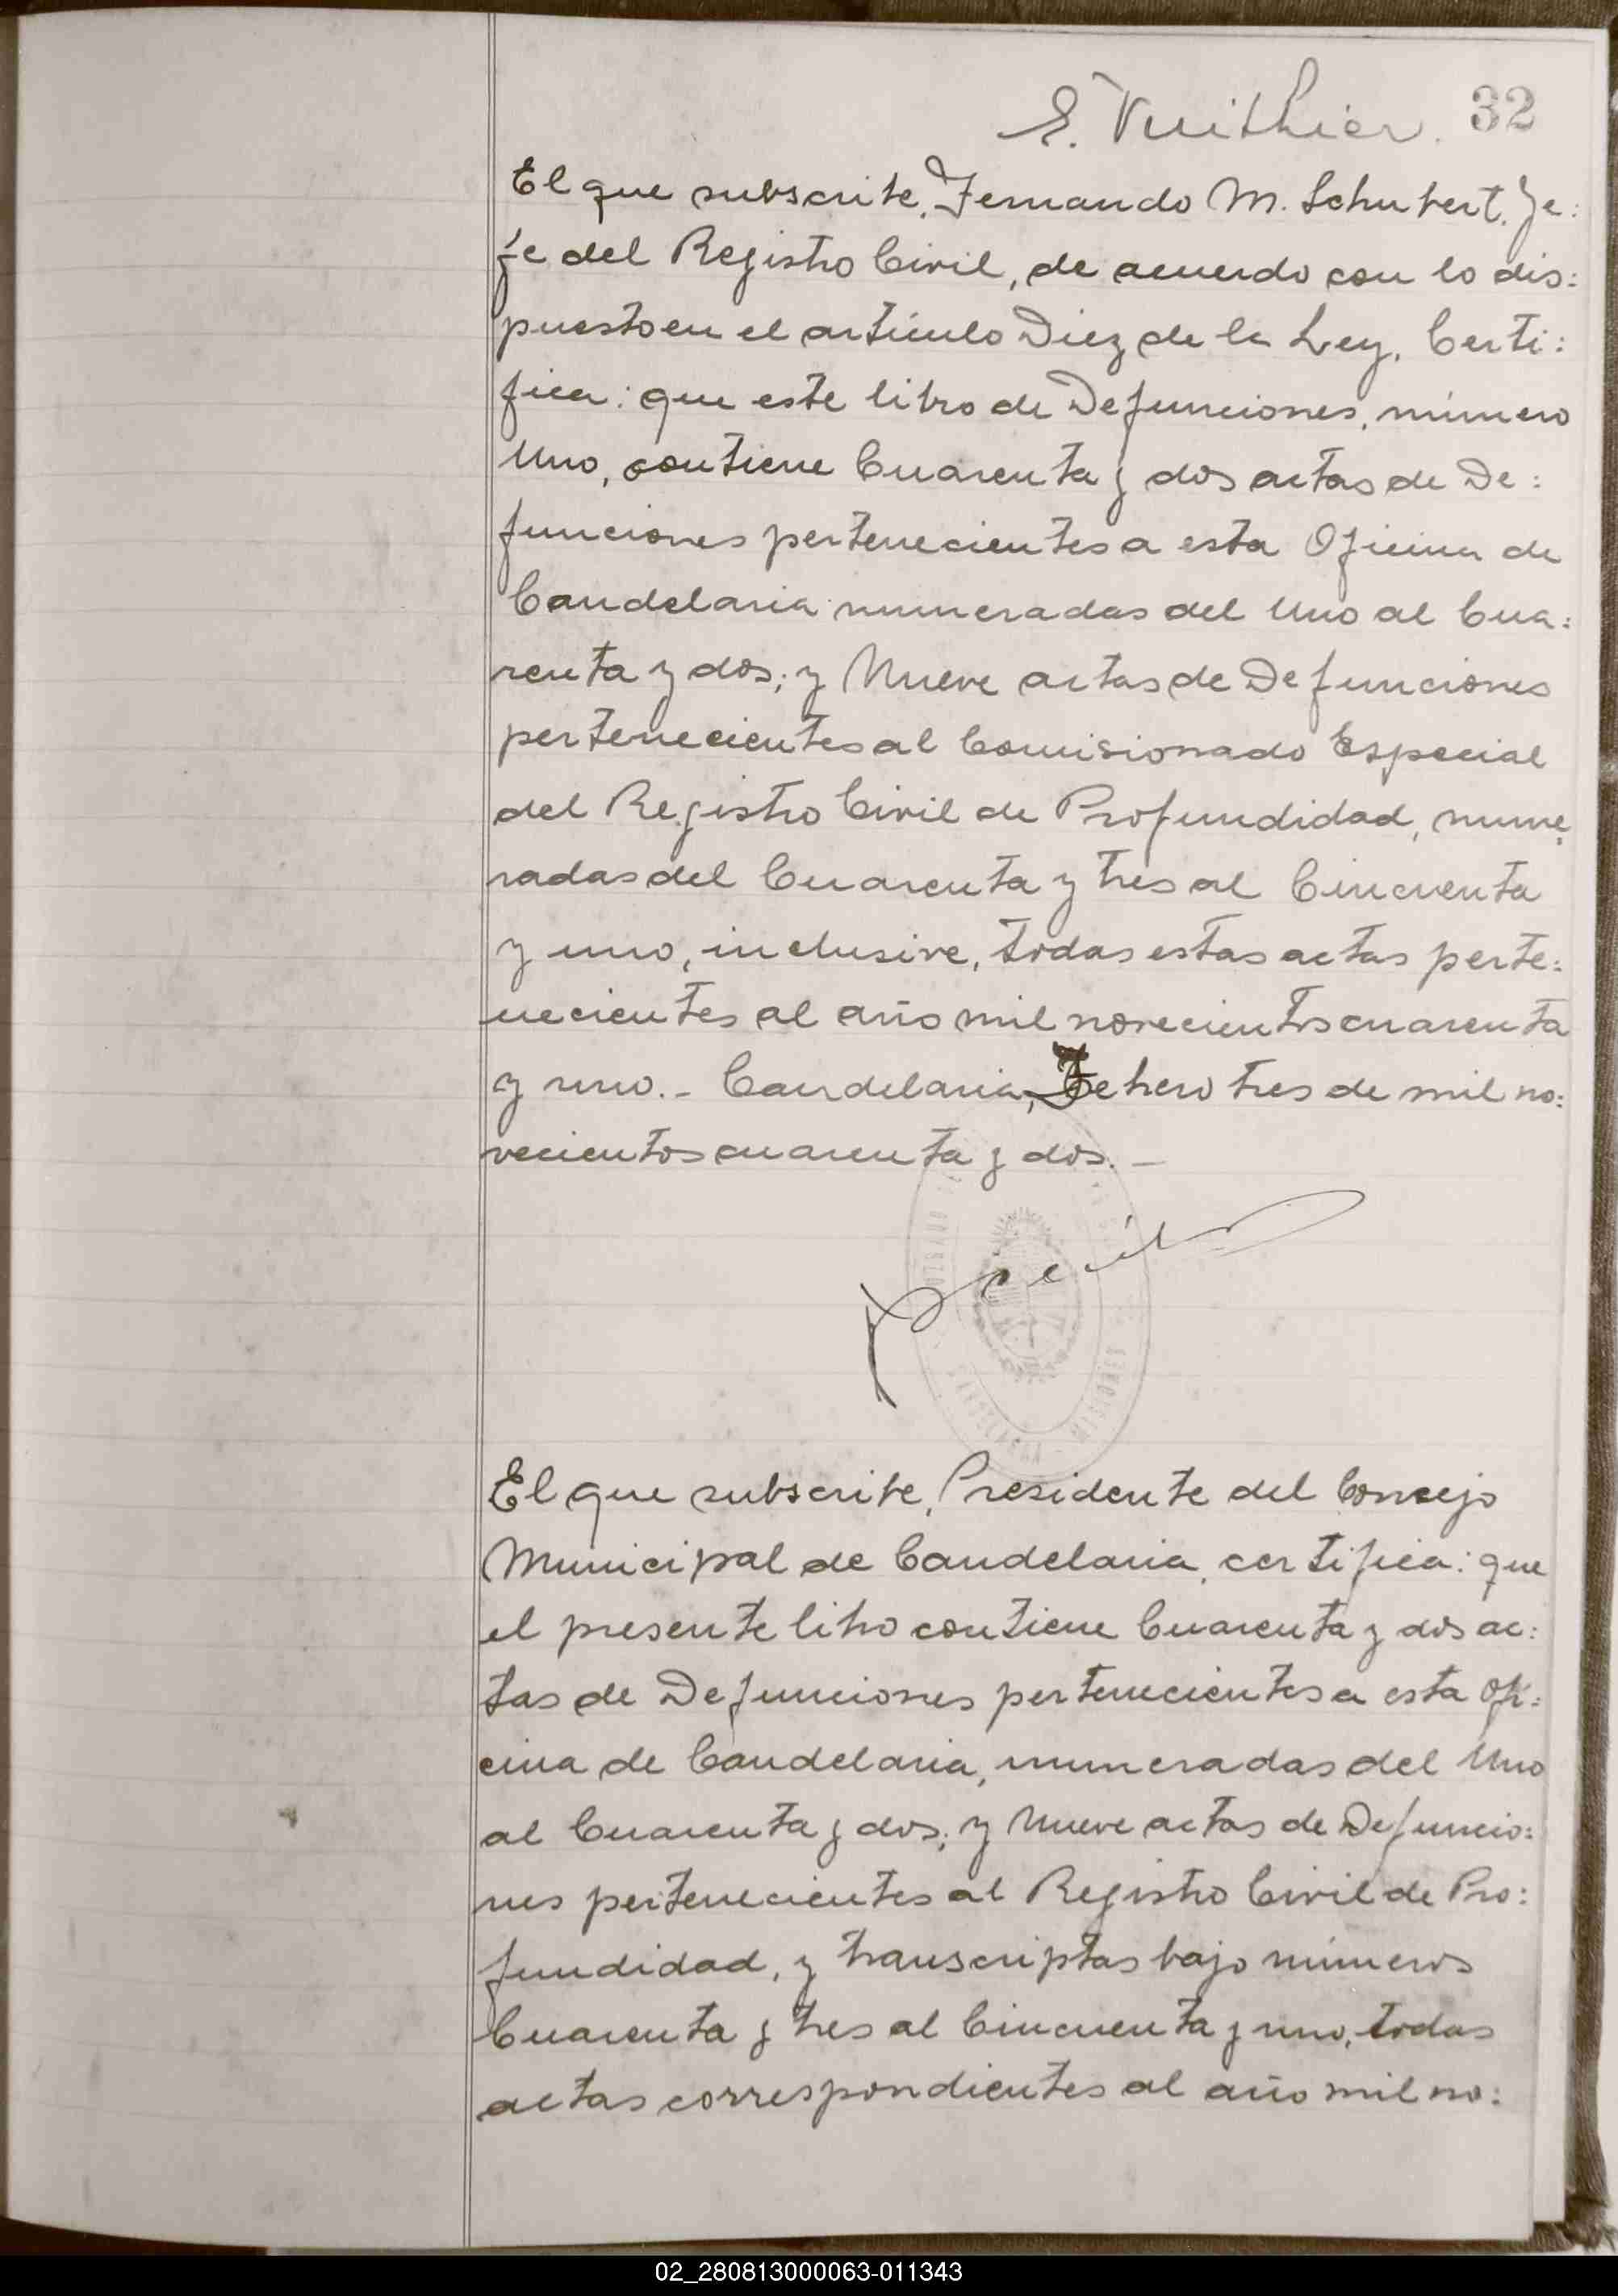 E. Vuithier. 32
El que subscribe, Fernando M. Schubert, Je:
fe del Registro Civil, de acuerdo con lo dis:
puesto en el artículo Diez de la Ley, Certi:
fica: que este libro de Defunciones, número
Uno, contiene Cuarenta y dos actas de De:
funciones pertenecientes a esta Oficina de
Candelaria numeradas del Uno al Cua:
renta y dos; y Nueve actas de Defunciones
pertenecientes al Comisionado Especial
del Registro Civil de Profundidad, nume
radas del Cuarenta y tres al Cincuenta
y uno, inclusive, todas estas actas perte:
necientes al año mil novecientos cuarenta
y uno.- Candelaria, Febrero tres de mil no:
vecientos cuarenta y dos.-
CANDELARIA - MISIONES
El que subscribe, Presidente del Consejo
Municipal de Candelaria, certifica: que
el presente libro contiene Cuarenta y dos ac:
tas de Defunciones pertenecientes a esta Ofi:
cina de Candelaria, numeradas del Uno
al Cuarenta y dos; y Nueve actas de Defuncio:
nes pertenecientes al Registro Civil de Pro:
fundidad, y transcriptas bajo números
Cuarenta y tres al Cincuenta y uno, todas
actas correspondientes al año mil no:
02_280813000063-011343